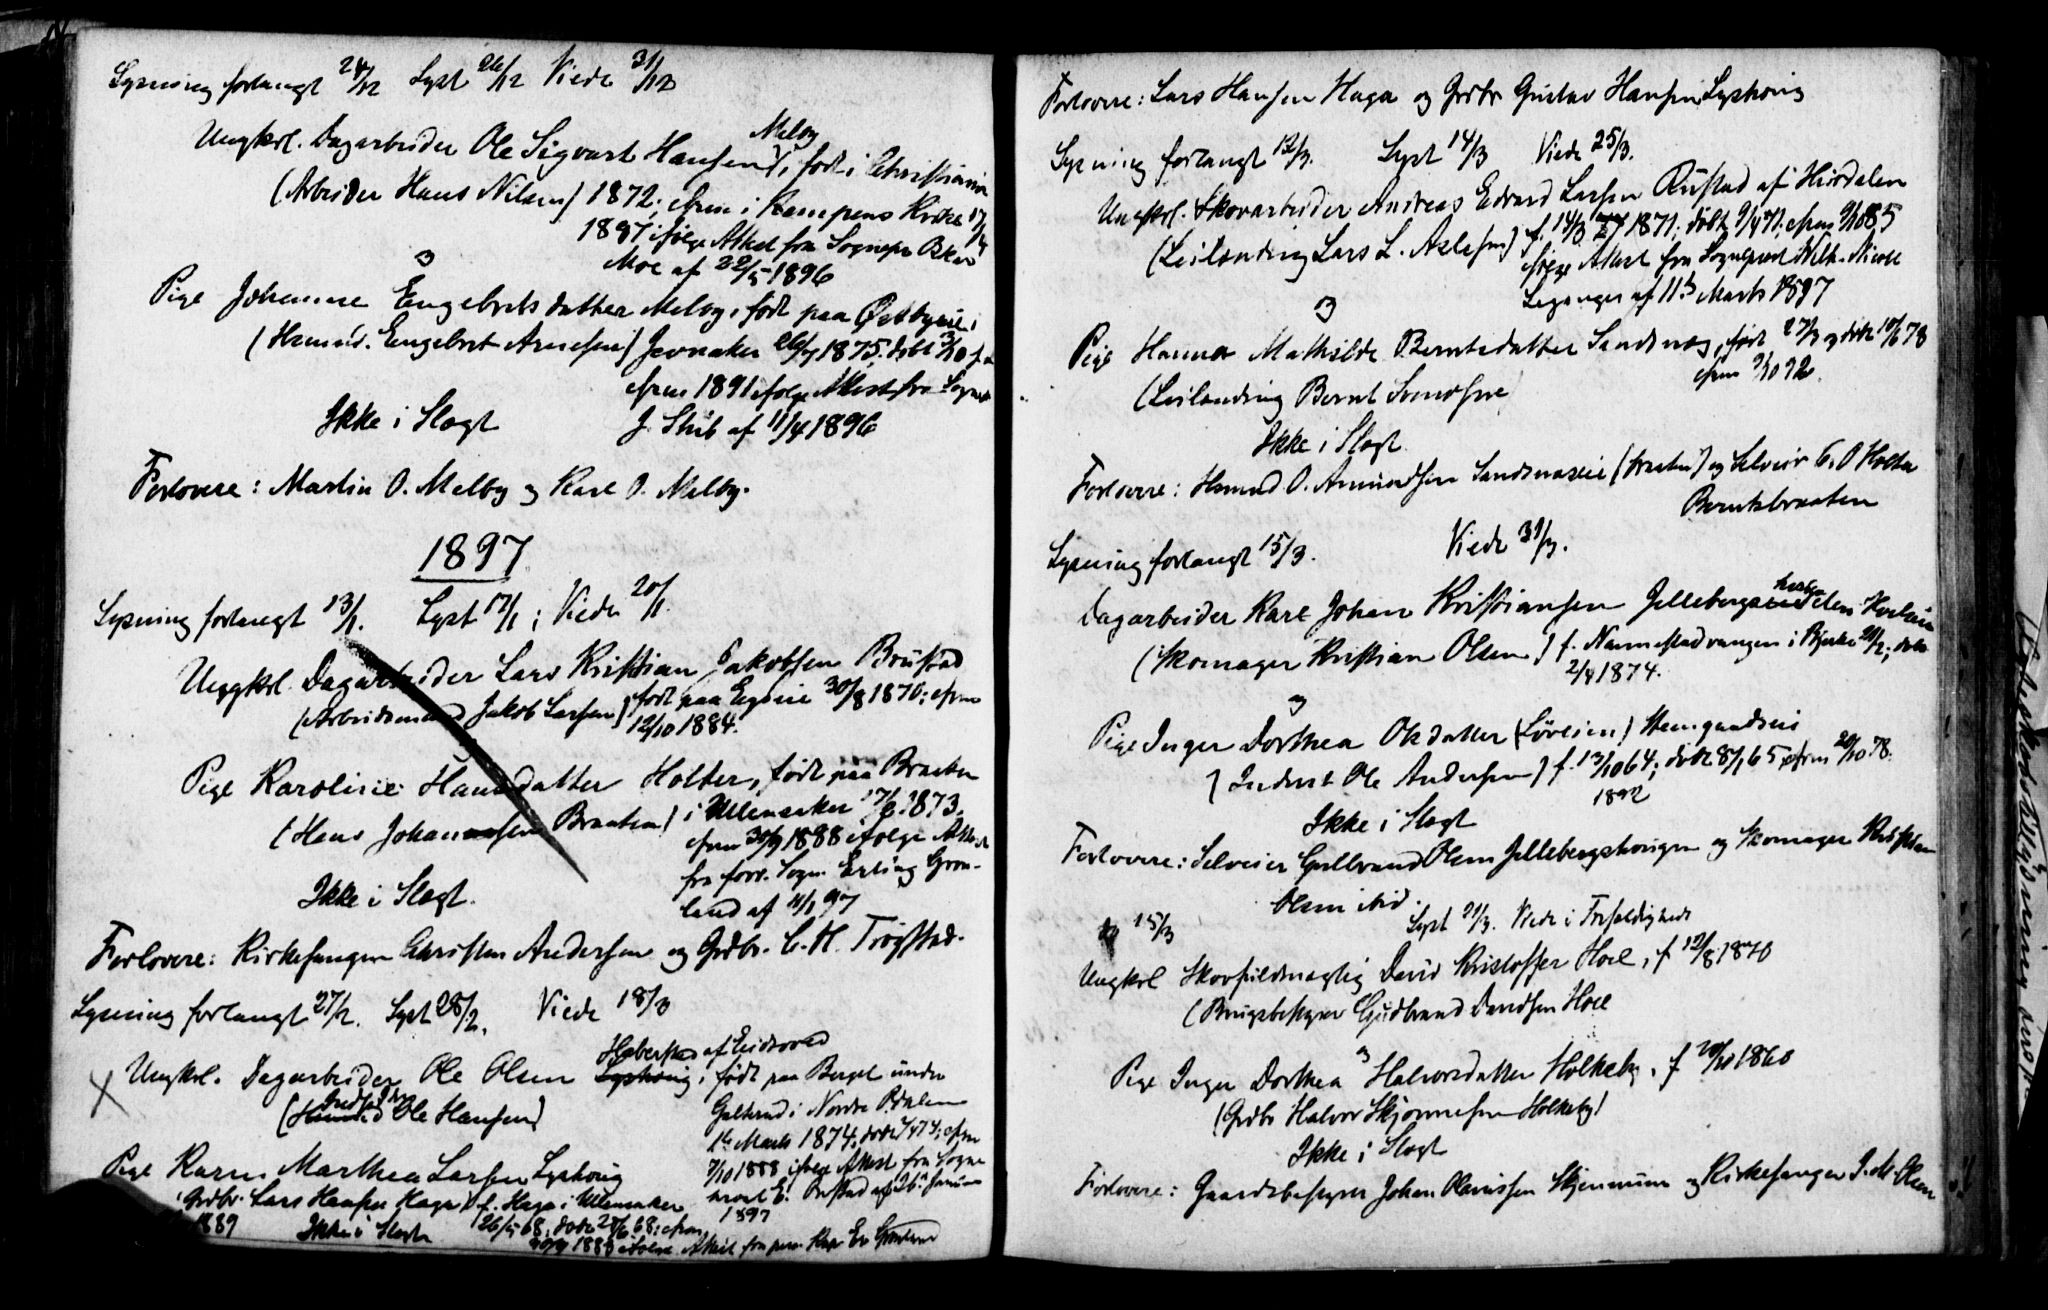 Lysning forlangt 24/12 Lyst 26/12 Viede 31/12
Melby
Ungkrl. Dagarbeider Ole Sigvart Hansen, født i Christiania
(Arbeider Hans Nilsen) 1872; cfrm i Kampens Kirke
1887 ifølge Attest fra Sognepr
Moe af 22/5 1896
og
Pige Johanne Engebretsdatter Melby, født paa Østbyeie i
(Husmd. Engebret Arnesen) Jevnaker 26/7 1875; døbt 3/10 s.a
cfrm 1891 ifølge Attest fra Sognepr
Ikke i Slægt J. Stub af 11/4 1896
Forlovere: Martin O. Melby og Karl O. Melby.
1897
Lysning forlangt 13/1. Lyst 17/1; Viede 20/1.
Ungkrl. Dagarbeider Lars Kristian Jakobsen Brustad
(Arbeidsmand Jakob Larsen) født paa Egseie 30/8 1870; cfrm
12/10 1884.
Pige Karoline Hansdatter Holter, født paa Braaten
(Hans Johannesen Braaten) i Ullensaker 17/2 1873.
cfrm 30/9 1888 ifølge Attest
fra forr. Sogn. Erling Grøn-
Ikke i Slægt. land af 11/1 97
Forlovere: Kirkesanger Christen Andersen og Grdbr. C. H. Trøgstad.
Lysning forlangt 27/2. Lyst 28/2. Viede 18/3
Haberstad af Eidsvold
Ungkrl. Dagarbeider Ole Olsen Lyshoug, født paa Berget under
(Husmd Ole Hansen) Galterud i Nordre Odalen
1te Marts 1874, døbt 7/4 74; cfrm
7/10 1888 ifølge Attest fra Sogne
Pige Karen Marthea Larsen Lyshoug
(Grdbr. Lars Hansen Haga) f. Haga i Ullensaker
1897
1889 Ikke i Slægt 26/5 68; døbt 68; cfrm
1883 ifølge Attest fra Grønland
Forlovere: Lars Hansen Haga og Grdbr Gustav Hansen Lyshoug
Lysning forlangt 12/3. Lyst 14/3 Viede 25/3.
Ungkrl. Skovarbeider Andreas Edvard Larsen Rustad af Hurdalen
(Leilænding Lars L. Aslesen) f. 14/3 1871; døbt 9/4 71; cfrm 9/10 85
ifølge Attest fra Sogneprest Wilh. Nicoll
Leganger af 11te Marts 1897
og
Pige Hanna Mathilde Berntsdatter Sandsnæs, født 27/3 og døbt 10/6 78
cfrm 2/10 92.
(Leilænding Bernt Svendsen
Ikke i Slægt
Forlovere: Husmd O. Amundsen Sandsnæseie (Braaten) og Selveier C. O Holter
Berntsbraaten
Lysning forlangt 15/3. Viede 31/3.
Dagarbeider Karl Johan Kristiansen Jellebergs
(Skomager Kristian Olsen) f. Nannestadvangen i Bjerke 20/2; døbt
2/4 1874.
og
Pige Inger Dorthea Olsdatter (Løveien) Hemgaardseie
(Inderst Ole Andersen) f. 13/10 64; døbt 8/1 65, cfrm 20/10 78.
1892
Ikke i Slægt
Forlovere: Selveier Gulbrand Olsen Jellebergshougen og Skomager Kristian
Olsen ibid.
15/3 Lyst 21/3. Viede i Trefoldigheds
Ungkrl Skovfuldmægtig David Kristoffer Hoel, f 12/8 1870
(Brugsbestyrer Gudbrand Davidsen Hoel
og
Pige Inger Dorthea Halvorsdatter Holkeby, f 20/10 1860
(Grdbr Halvor Skjønnesen Holkeby)
Ikke i Slægt
Forlovere: Gaardsbestyrer Johan Olaniussen Skjennum og Kirkesanger J. M. Olsen